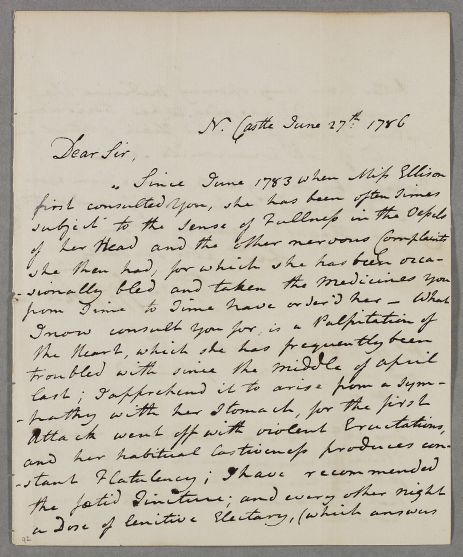 N. Castle June 27th. 1786
Dear Sir,
" Since June 1783 when Miss Ellison
first consulted You, she has been often Times
subject to the Sense of Fullness in the Vessels
of her Head and the other nervous Complaints
she then had, for which she has been occa-
-sionally bled and taken the Medicines you
from Time to Time have order'd her – What
I now consult You for, is a Palpitation of
the Heart, which she has frequently been
troubled with since the middle of April
last; I apprehend it to arise from a Sym-
-pathy with her Stomach, for the first
Attack went off with violent Eructations,
and her habitual Costiveness produces con-
-stant Flatulency; I have recommended
the fœtid Tincture; and every other night
a Dose of lenitive Electary, (which answers
92